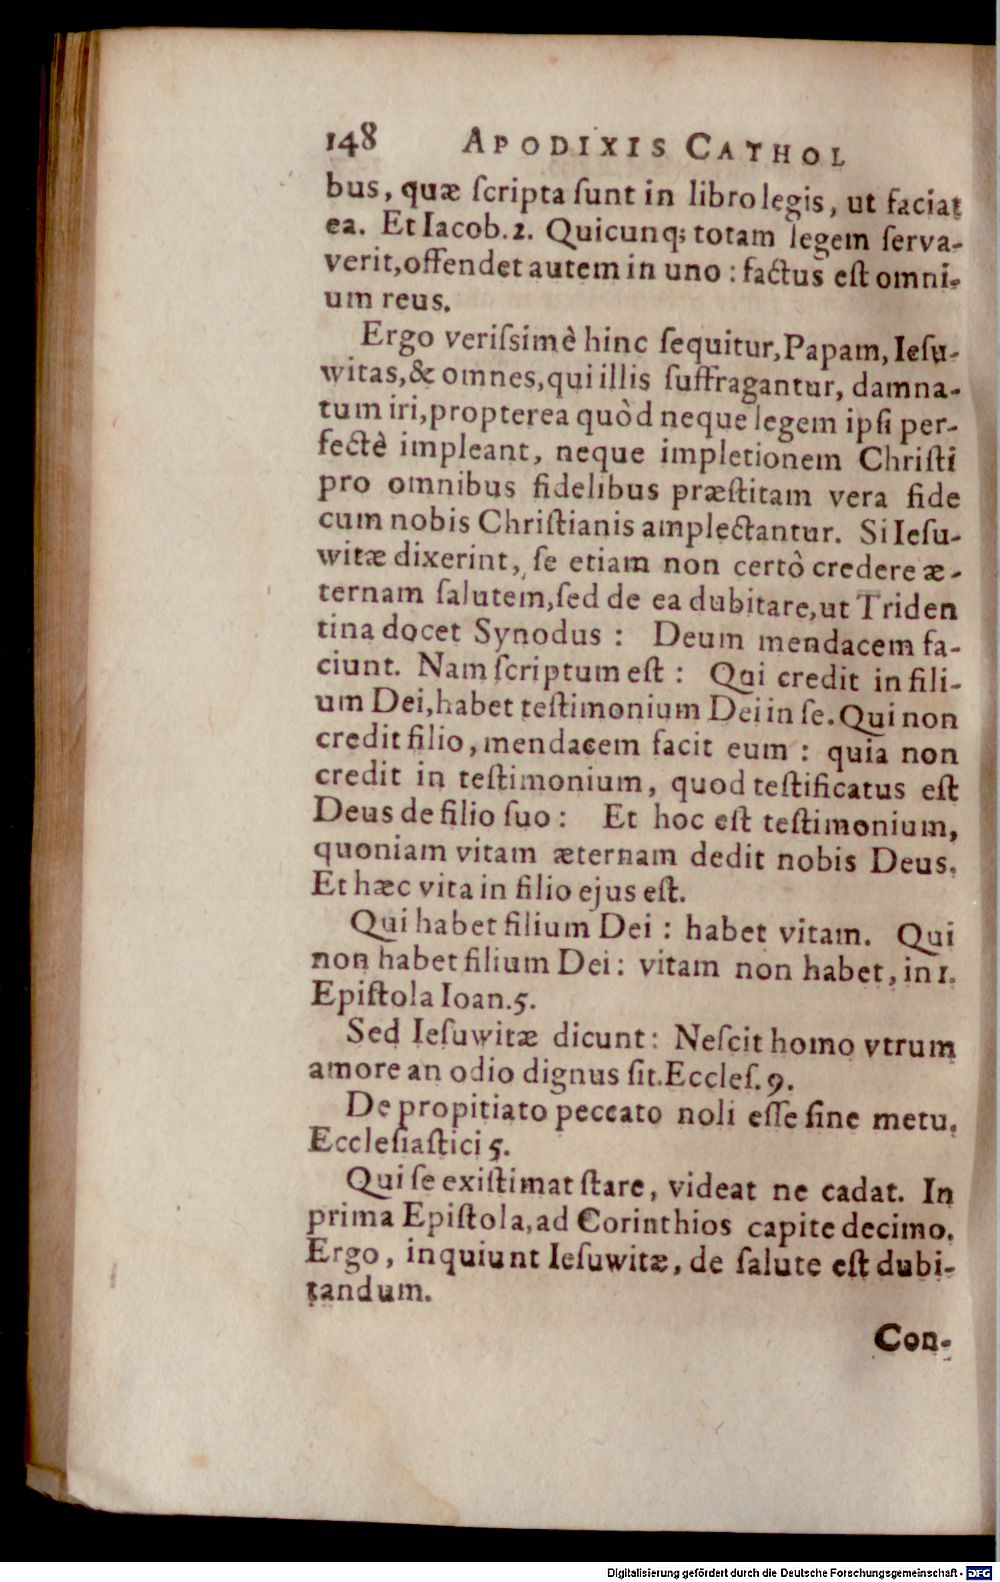 148 APODIXIS CATHOL
bus, quæ ſcripta ſunt in libro legis, ut faciat
ea. Et Iacob. 2. Quicunq; totam legem ſerva-
verit, offendet autem in uno : factus eſt omni-
um reus.
Ergo veriſsimè hinc ſequitur, Papam, Ieſu-
witas, & omnes, qui illis ſuffragantur, damna-
tum iri, propterea quòd neque legem ipſi per-
fectè impleant, neque impletionem Chriſti
pro omnibus fidelibus præſtitam vera fide
cum nobis Chriſtianis amplectantur. Si Ieſu-
witæ dixerint, ſe etiam non certò credere æ-
ternam ſalutem, ſed de ea dubitare, ut Triden
tina docet Synodus : Deum mendacem fa-
ciunt. Nam ſcriptum eſt : Qui credit in fili-
um Dei, habet teſtimonium Dei in ſe. Qui non
credit filio, mendacem facit eum : quia non
credit in teſtimonium, quod teſtificatus eſt
Deus de filio ſuo : Et hoc eſt teſtimonium,
quoniam vitam æternam dedit nobis Deus.
Et hæc vita in filio ejus eſt.
Qui habet filium Dei : habet vitam. Qui
non habet filium Dei : vitam non habet, in 1.
Epiſtola Ioan. 5.
Sed Ieſuwitæ dicunt : Neſcit homo vtrum
amore an odio dignus ſit. Eccleſ. 9.
De propitiato peccato noli eſſe ſine metu.
Eccleſiaſtici 5.
Qui ſe exiſtimat ſtare, videat ne cadat. In
prima Epiſtola, ad Corinthios capite decimo.
Ergo, inquiunt Ieſuwitæ, de ſalute eſt dubi-
tandum.
Con-
Digitalisierung gefördert durch die Deutsche Forschungsgemeinschaft - DFG